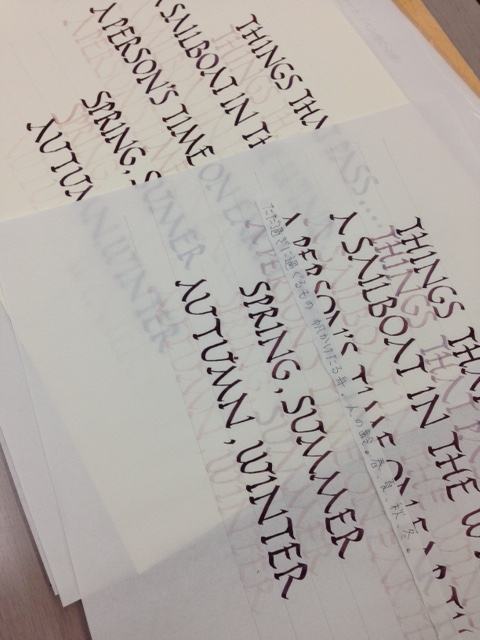 THINGS THAT PASS...
A SAILBOAT IN TH
A PERSON'S TIME ON EA
SPRING, SUMMER
AUTUMN WINTER
THINGS THA
A SAILBOAT IN THE W
A PERSON'S TIME ON EA
ただ過ぎに過ぐるもの 帆かけたる舟。人の齢。春、夏、秋、冬。
SPRING, SUMMER
AUTUMN, WINTER